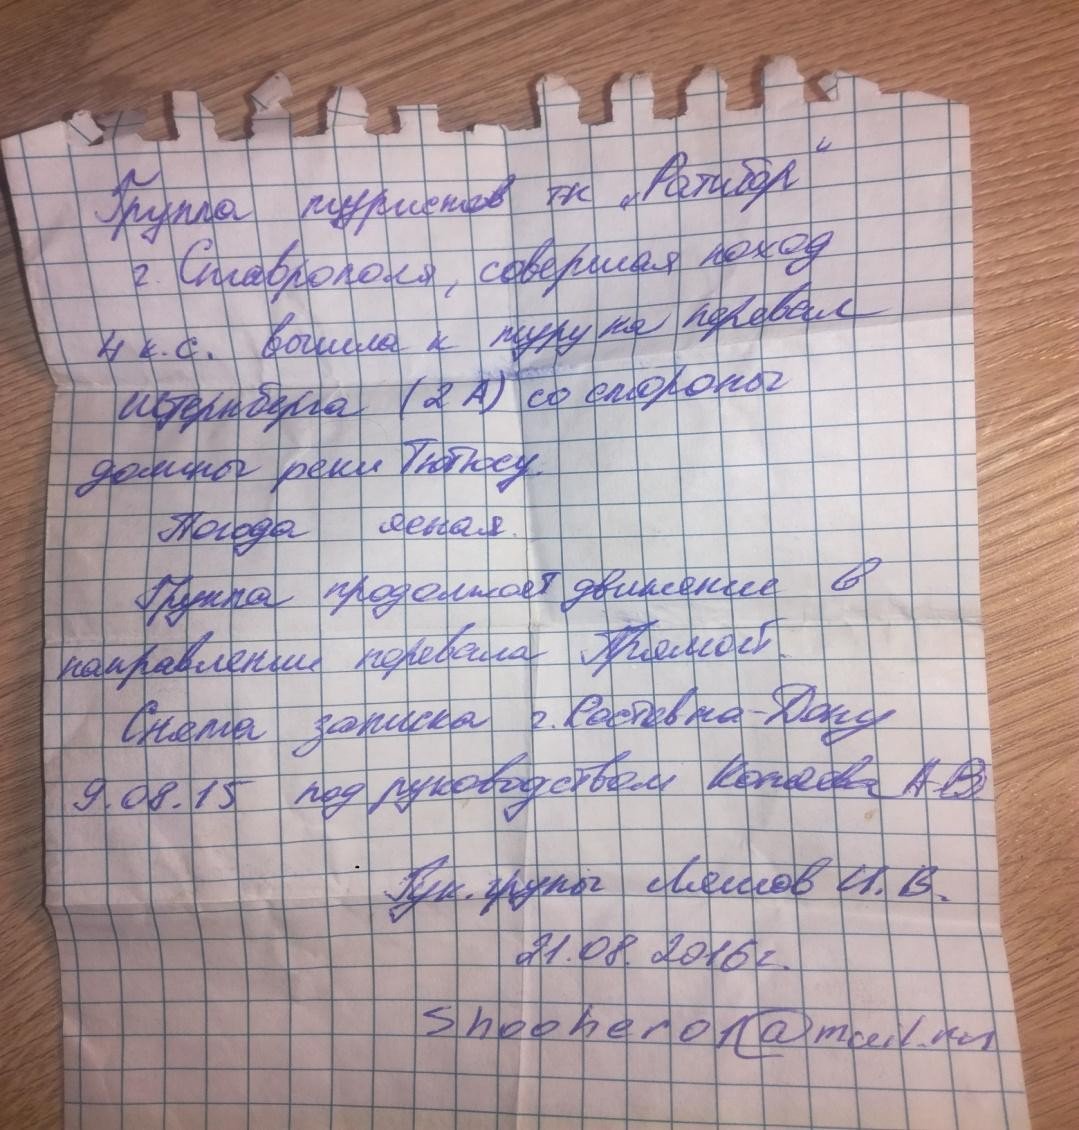 Группа туристов тк „Ратибор"
г. Ставрополя, совершая поход
4 к.с. вышла к туру на перевал
Штернберга (2А) со стороны
долины реки Тютюсу.
Погода ясная.
Группа продолжает движение в
направлении перевала Прямой.
Снята записка г. Ростов-на-Дону
9.08.15 под руководством А.В.
Рук. групы Ляшов И.В.
21.08.2016г.